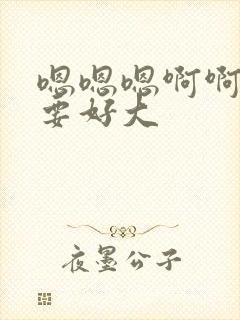 嗯嗯嗯啊啊
要好大
夜墨公子